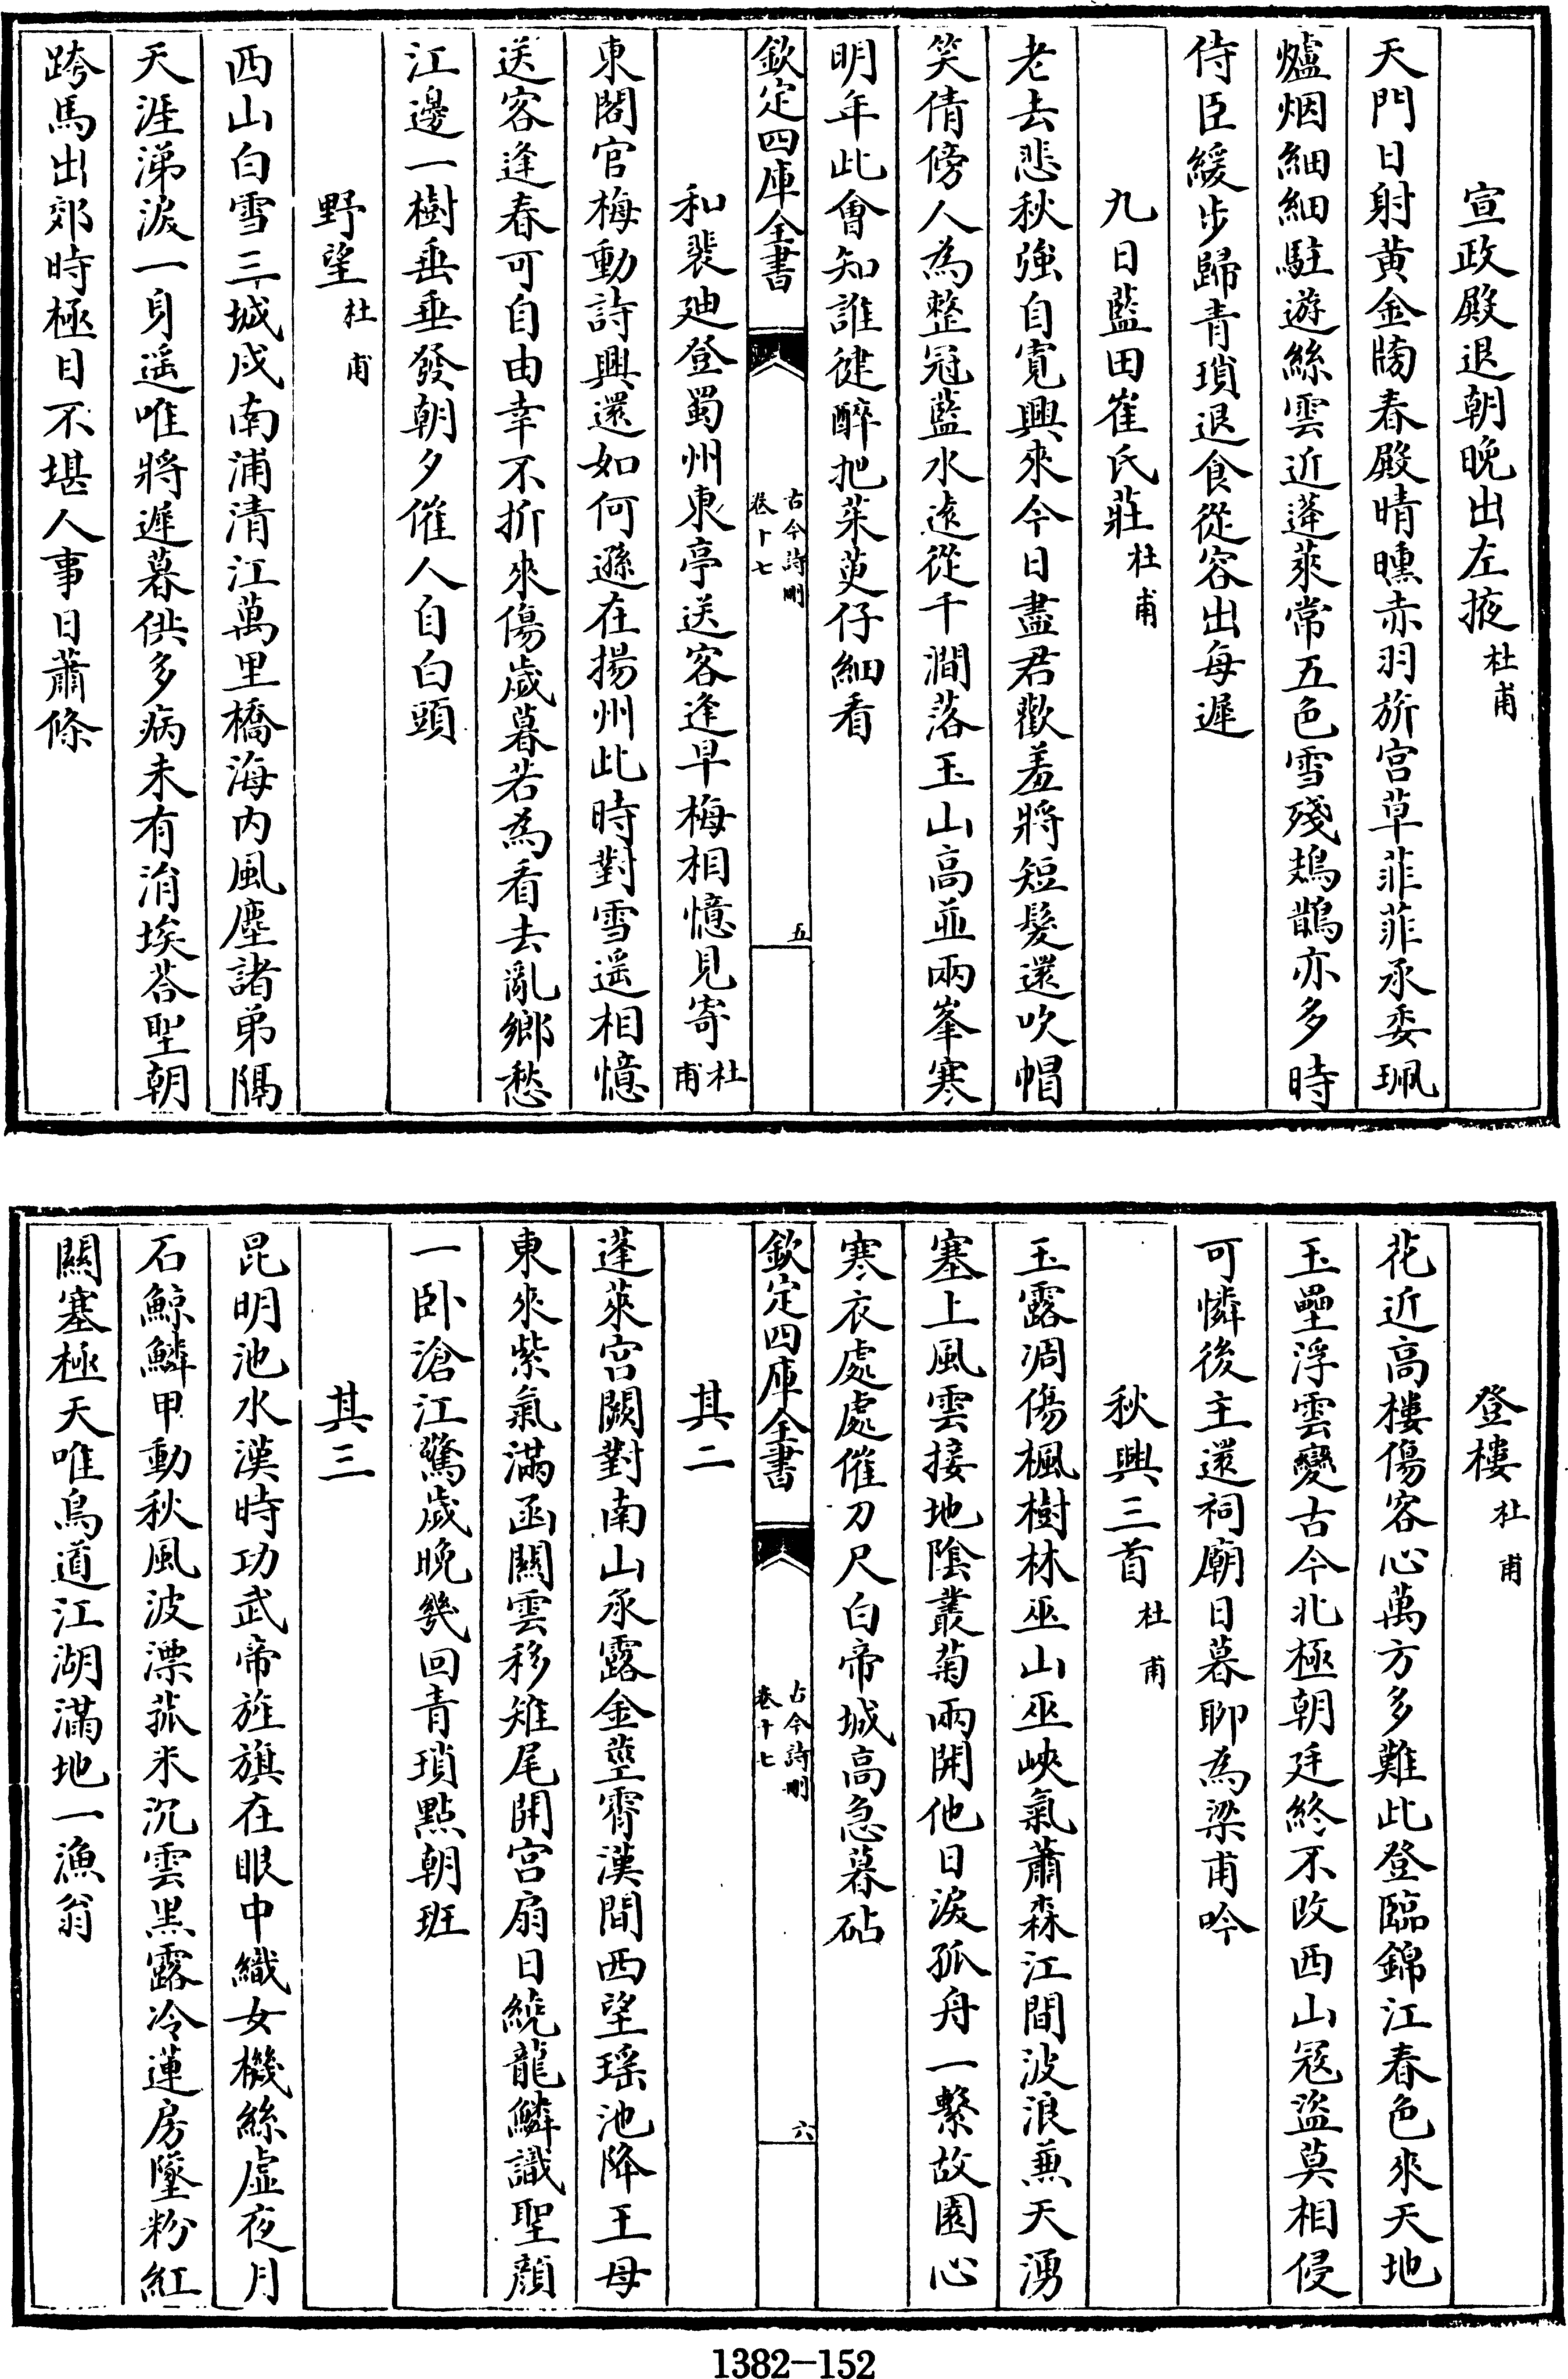 宣政殿退朝晚出左掖杜甫
天門日射黄金牓春殿晴曛赤羽旂宫草菲菲承委珮
爐烟細細駐遊絲雲近蓬萊常五色雪殘鳷鵲亦多時
侍臣緩步歸青瑣退食從容出每遲
九日藍田崔氏莊杜甫
老去悲秋強自寛興來今日盡君歡羞將短髮還吹帽
笑倩傍人為整冠藍水逺從千澗落玉山高並兩峯寒
明年此會知誰健醉把茱萸仔細看
欽定四庫全書
古今詩刪
卷十七
五
和裴廸登蜀州東亭送客逢早梅相憶見寄杜甫
東閣官梅動詩興還如何遜在揚州此時對雪遥相憶
送客逢春可自由幸不折來傷歲暮若為看去亂鄉愁
江邊一樹垂垂發朝夕催人自白頭
野望杜甫
西山白雪三城戍南浦清江萬里橋海内風塵諸弟隔
天涯涕淚一身遥唯將遲暮供多病未有涓埃荅聖朝
跨馬出郊時極目不堪人事日蕭條
登樓杜甫
花近高樓傷客心萬方多難此登臨錦江春色來天地
玉壘浮雲變古今北極朝廷終不改西山冦盜莫相侵
可憐後主還祠廟日暮聊為梁甫吟
秋興三首杜甫
玉露凋傷楓樹林巫山巫峽氣蕭森江間波浪兼天湧
塞上風雲接地隂叢菊兩開他日淚孤舟一繫故園心
寒衣處處催刀尺白帝城高急暮砧
欽定四庫全書
古今詩刪
卷十七
六
其二
蓬萊宫闕對南山承露金莖霄漢間西望瑶池降王母
東來紫氣滿函關雲移雉尾開宫扇日繞龍鱗識聖顔
一卧滄江驚歲晚幾回青瑣點朝班
其三
昆明池水漢時功武帝旌旗在眼中織女機絲虚夜月
石鯨鱗甲動秋風波漂菰米沉雲黑露冷蓮房墜粉紅
關塞極天唯鳥道江湖滿地一漁翁
1382—152